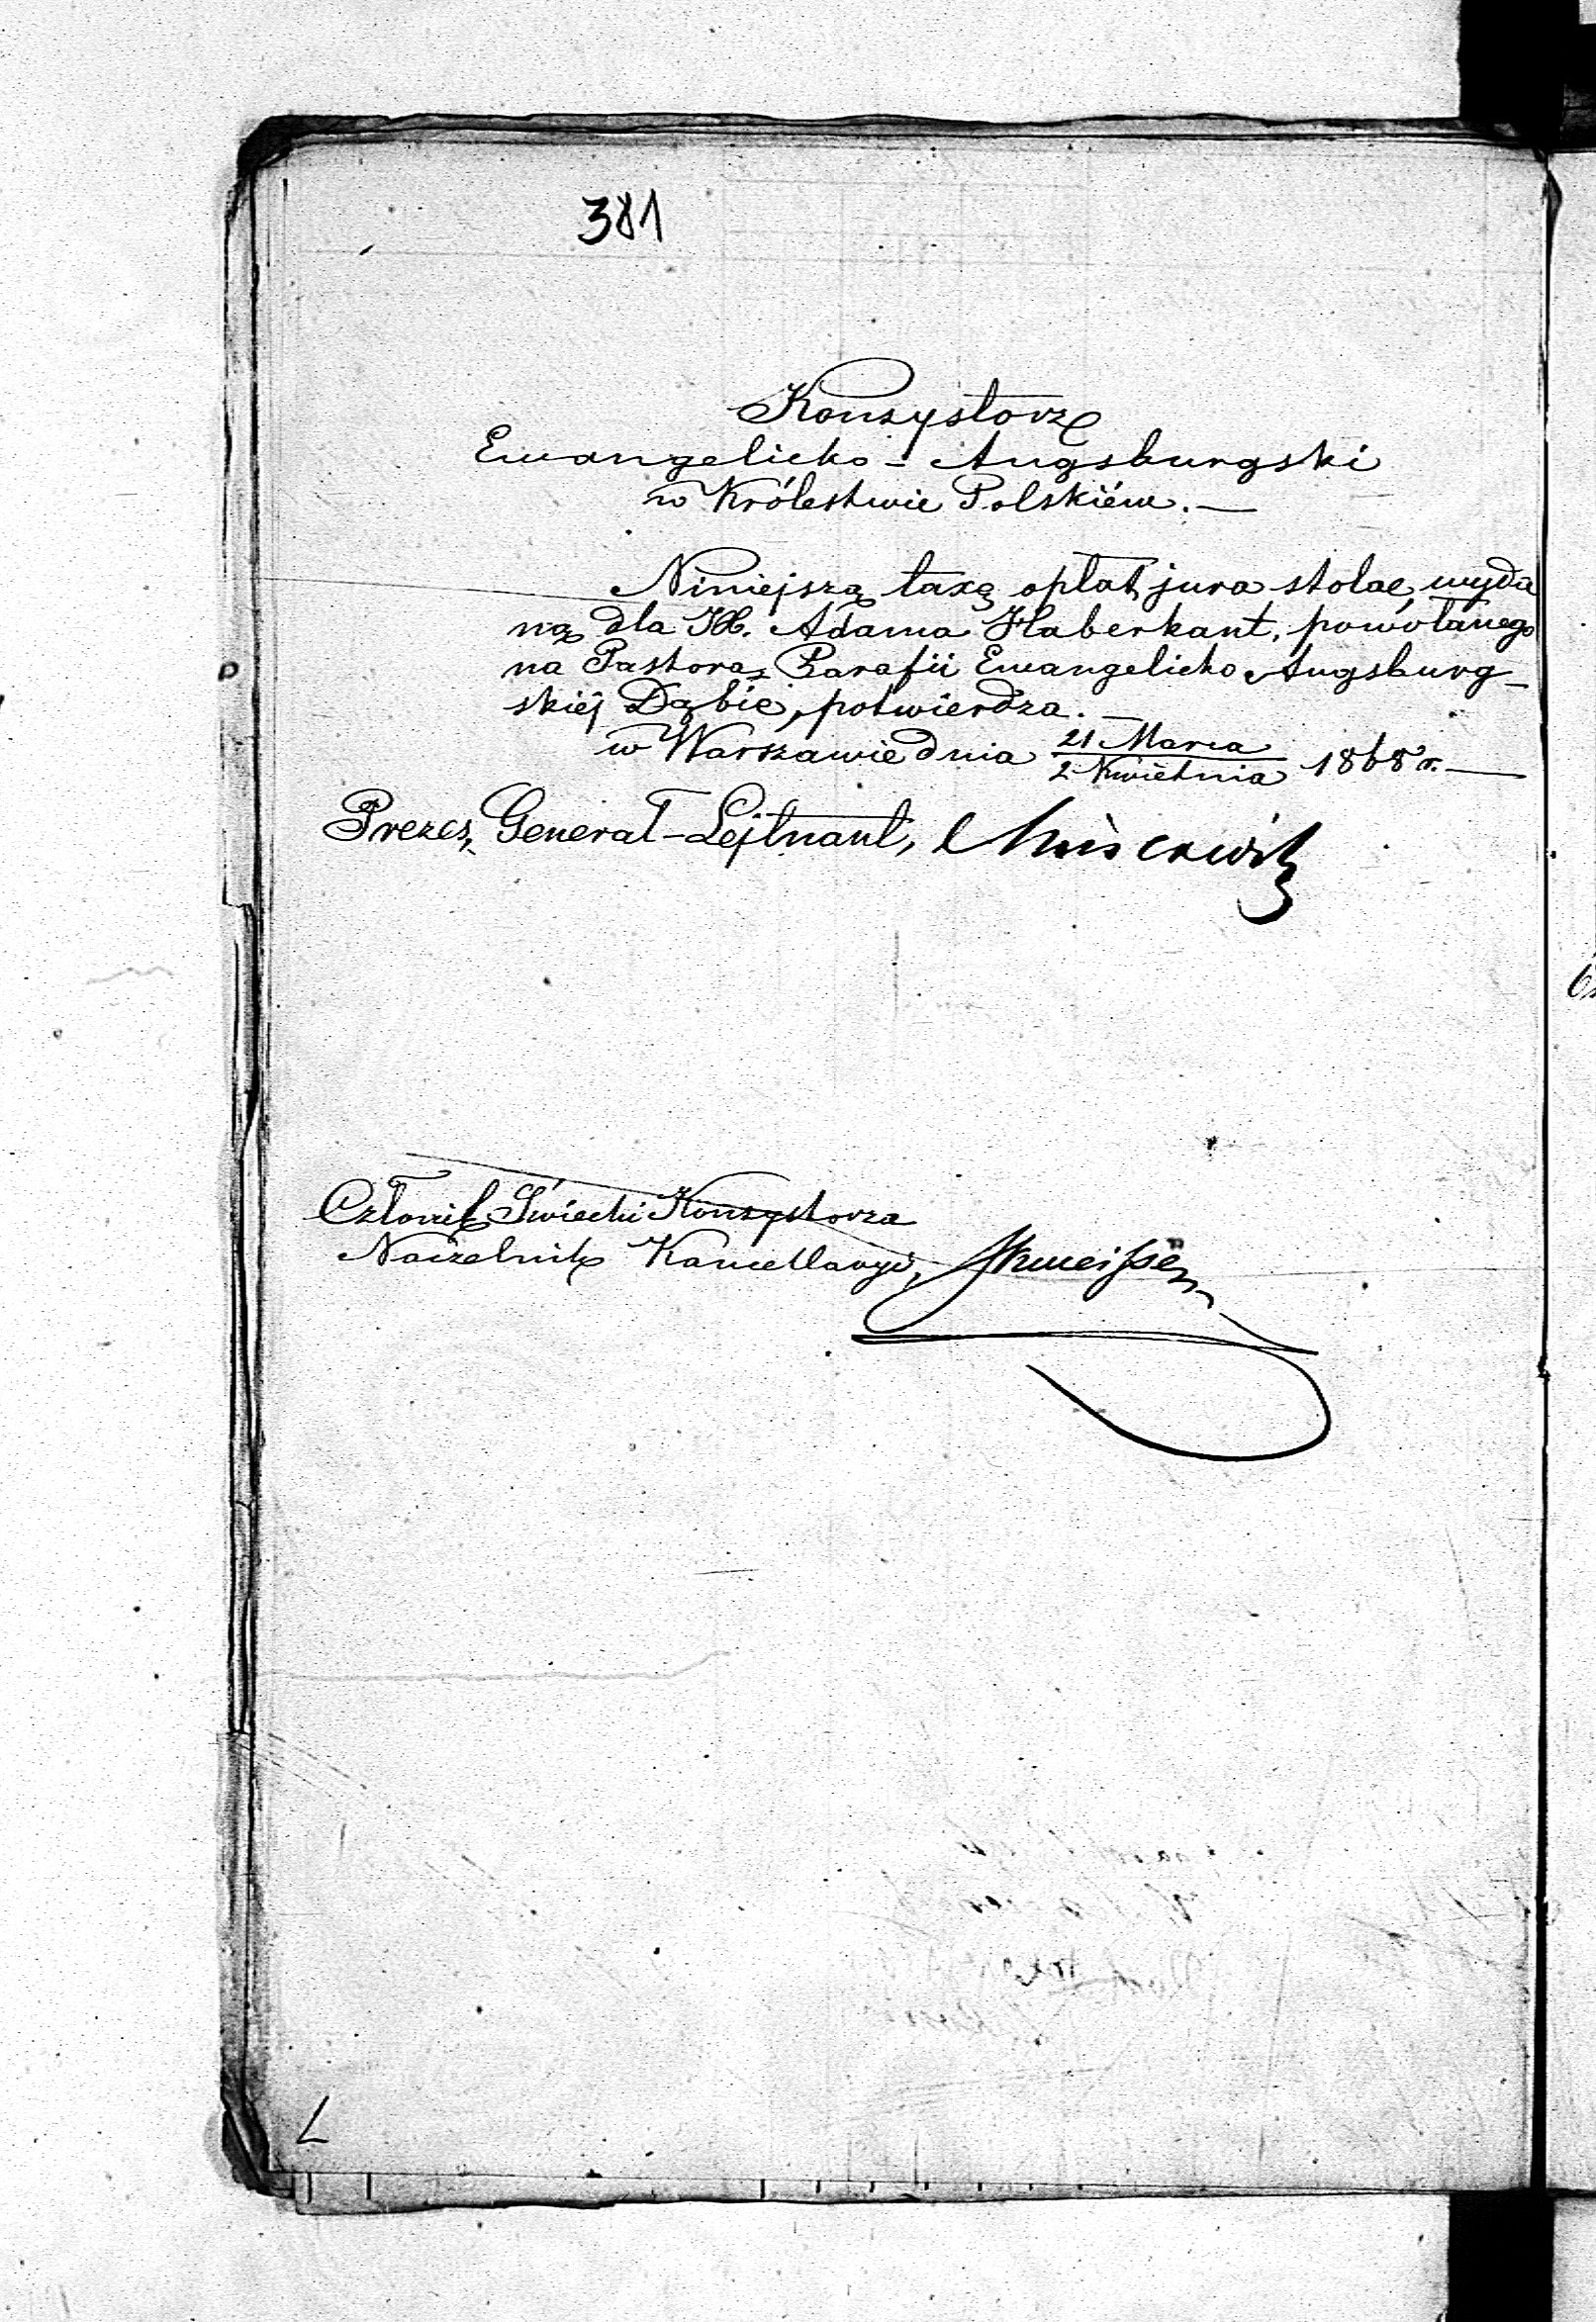 381
Konsystorz
Ewangelicko - Augsburgski
w Królestwie Polskiém. —
Niniejszą taxę opłat jura stolae, wyda
ną dla JX. Adama Haberkant, powołanego
na Pastora Parafii Ewangelicko Augsburg-
skiéj Dąbie, potwierdza. —
w Warszawie dnia 21 Marca / 2 Kwietnia 1868 r. —
Prezes, Generał-Lejtnant,
Członek Świecki Konsystorza
Naczelnik Kancellaryi,